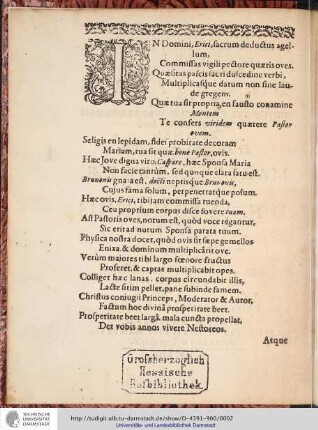 IN Domini, Erici, sacrum deductus agel-
lum,
Commissas vigili pectore quæris oves.
Quæsitas pascis sacri dulcedine verbi,
Multiplicasque datum non sine lau-
de gregem.
Quæ tua sit propria, en fausto conamine
Montem
Te confers viridem quærere Pastor
ovem.
Seligis en lepidam, fidei probitate decoram
Mariam, tua sit quæ, bone Pastor, ovis.
Hæc Jove digna viro, Caspare, hæc Sponsa Maria
Non facie tantùm, sed quoque clara satu est.
Brunonis gnata est, docti neptisque Brunonis,
Cujus fama solum, perpenetratque polum.
Hæc ovis, Erici, tibi jam commissa tuenda,
Ceu proprium corpus disce fovere tuum.
Ast Pastoris oves, notum est, quòd voce regantur,
Sic erit ad nutum Sponsa parata tuum.
Physica nostra docet, quòd ovis sit sæpe gemellos
Enixa, & dominum multiplicârit ope.
Verùm maiores tibi largo fœnore fructus
Proferet, & captas multiplicabit opes.
Colliget hæc lanas, corpus circundabit illis,
Lacte sitim pellet, pane subinde famem.
Christus coniugii Princeps, Moderator & Autor,
Factum hoc divinâ prosperitate beet.
Prosperitate beet largâ, mala cuncta propellat,
Det vobis annos vivere Nestoreos.
Atque
Großherzoglich
Hessische
Hofbibliothek
TECHNISCHE
UNIVERSITÄT
DARMSTADT
http://tudigit.ulb.tu-darmstadt.de/show/O-4391-900/0002
Universitäts- und Landesbibliothek Darmstadt